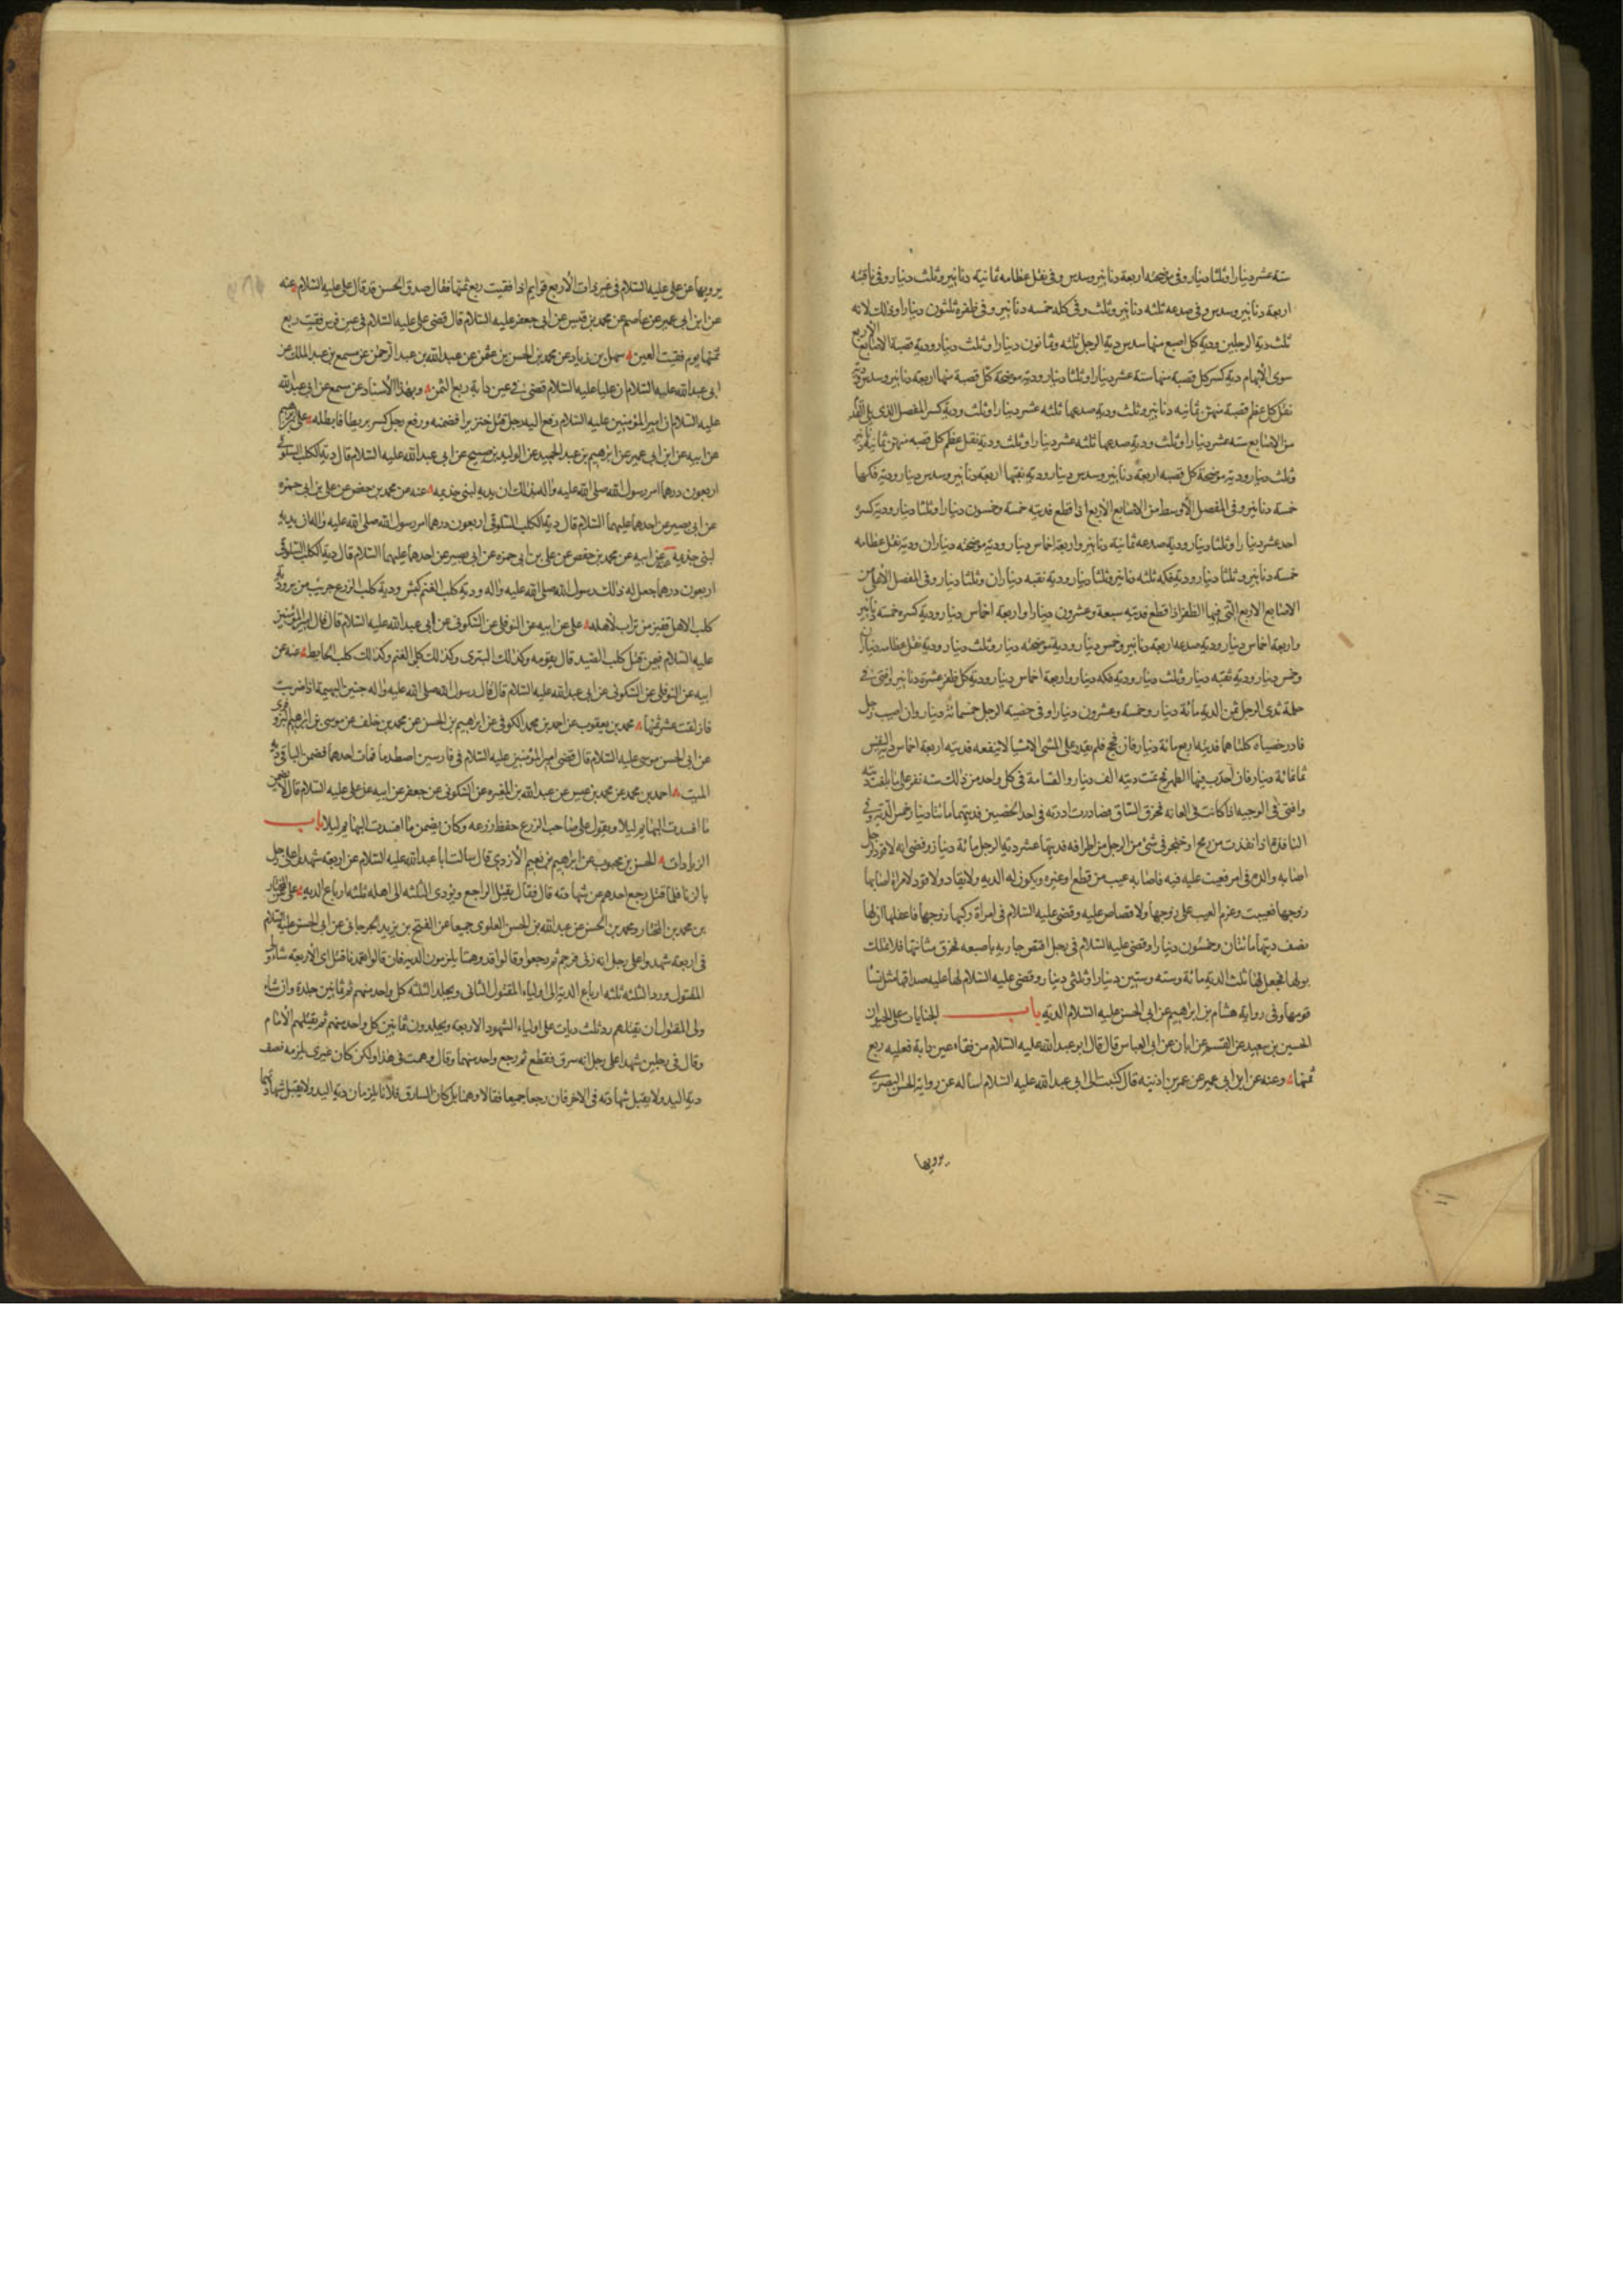 ستة عشر دينارا وثلثا دينار وفى موضحته اربعة دنانير وسدس وفى نقل عظامه ثمانية دنانير وثلث دينار وفى ناقبته
اربعة دنانير وسدس وفى صدعه ثلثه دنانير وثلث وفى فكه خمسه دنانير وفى ظفره ثلثون دينارا وذلك لانه
ثلث دية الرجلين ودية كل اصبع منها سدس دية الرجل ثلثه وثمانون دينارا وثلث دينار ودية قصبة الاصابع الاربع
سوى الابهام دية كسر كل قصبة منها ستة عشر دينارا وثلثا دينار ودية موضحة كل قصبة منها اربعة دنانير وسدس ودية
نقل كل عظم قصبة منهن ثمانيه دنانير وثلث ودية صدعها ثلثه عشر دينارا وثلث ودية كسر المفصل الذى يلى القدم
من الاصابع ستة عشر دينارا وثلث ودية صدعها ثلثه عشر دينارا وثلث ودية نقل عظم كل قصبه منهن ثمانية دنانير
وثلث دينار ودية موضحة كل قصبه اربعة دنانير وسدس دينار ودية نقبها اربعة دنانير وسدس دينار ودية فكها
خمسة دنانير وفى المفصل الاوسط من الاصابع الاربع اذا قطع فديته خمسة وخمسون دينارا وثلثا دينار ودية كسره
احد عشر دينارا وثلثا دينار ودية صدعه ثمانية دنانير واربعة اخماس دينار ودية موضحته ديناران ودية نقل عظامه
خمسة دنانير وثلثا دينار ودية فكه ثلثه دنانير وثلثا دينار ودية نقبه ديناران وثلثا دينار وفى المفصل الاعلى من
الاصابع الاربع التى فيها الظفر اذا قطع فديته سبعة وعشرون دينارا واربعة اخماس دينار ودية كسره خمسة دنانير
واربعة اخماس دينار ودية صدعه اربعة دنانير وخمس دينار ودية موضحته دينار وثلث دينار ودية نقل عظامه ديناران
وخمس دينار ودية نقبه دينار وثلث دينار ودية فكه دينار واربعة اخماس دينار ودية كل ظفر عشرة دنانير وافتى فى
حلمة ثدى الرجل ثمن الدية مائة دينار وخمسة وعشرون دينارا وفى خصية الرجل خمسمائة دينار وان اصيب رجل
فادر خصياه كلتاهما فديته اربع مائة دينار فان فحج فلم يقدر على المشى الا مشيا لا ينفعه فديته اربعة اخماس دية النفس
ثمانمائة دينار فان احدب منها الظهر فح تمت ديته الف دينار والقسامة فى كل واحد من ذلك ستة نفر على ما بلغت ديته
وافتى فى الوجيه اذا كانت فى العانه فخرق الصفاق فصارت ادرة فى احد الخصيين فديتها مائتا دينار خمس الدية وفى
النافذة اذا نفذت من رمح او خنجر فى شئ من الرجل من اطرافه فديتها عشر دية الرجل مائة دينار وقضى انه لا قود لرجل
اصابه والده فى امر فعيب عليه فيه فاصابه عيب من قطع او غيره ويكون له الدية ولا يقاد ولا قود لامراة اصابها
زوجها فعيبت وغرم العيب على زوجها ولا قصاص عليه وقضى عليه السلام فى امراة ركبها زوجها فاعفلها ان لها
نصف ديتها مائتان وخمسون دينارا وقضى عليه السلام فى رجل افتض جاريه باصبعه فخرق مثانتها فلا تملك
بولها فجعل لها ثلث الدية مائة وستة وستين دينارا وثلثى دينار وقضى عليه السلام لها عليه صداقها مثل نساء
قومها وفى رواية هشام بن ابراهيم عن ابى الحسن عليه السلام الدية باب الجنايات على الحيوان
الحسين بن سعيد عن القسم عن ابان عن ابى العباس قال قال ابو عبد الله عليه السلام من فقاء عين دابة فعليه ربع
ثمنها وعنه عن ابن ابى عمير عن عمر بن اذينه قال كتبت الى ابى عبد الله عليه السلام اساله عن رواية الحسن البصرى
يرويها
يرويها عن على عليه السلام فى عين ذات الاربع قوايم اذا فقيت ربع ثمنها فقال صدق الحسن قد قال على عليه السلام عنه
عن ابن ابى عمير عن عاصم عن محمد بن قيس عن ابى جعفر عليه السلام قال قضى على عليه السلام فى عين فرس فقيت ربع
ثمنها يوم فقيت العين سهل بن زياد عن محمد بن الحسن بن شمون عن عبد الله بن عبد الرحمن عن مسمع بن عبد الملك عن
ابى عبد الله عليه السلام ان عليا عليه السلام قضى فى عين دابة ربع الثمن وبهذا الاسناد عن مسمع عن ابى عبد الله
عليه السلام ان امير المؤمنين عليه السلام رفع اليه رجل قتل خنزيرا فضمنه ورفع رجل كسر بربطا فابطله على بن ابرهيم
عن ابيه عن ابن ابى عمير عن ابرهيم بن عبد الحميد عن الوليد بن صبيح عن ابى عبد الله عليه السلام قال دية الكلب السلوقى
اربعون درهما امر رسول الله صلى الله عليه واله بذلك ان يديه لبنى جذيمه عنه عن محمد بن حفص عن على بن ابى حمزه
عن ابى بصير عن احدهما عليهما السلام قال دية الكلب السلوقى اربعون درهما امر رسول الله صلى الله عليه واله ان يديه
لبنى جذيمة عنه عن ابيه عن محمد بن حفص عن على بن ابى حمزه عن ابى بصير عن احدهما عليهما السلام قال دية الكلب السلوقى
اربعون درهما جعل له ذلك رسول الله صلى الله عليه واله ودية كلب الغنم كبش ودية كلب الزرع جريب من بر ودية
كلب الاهل قفيز من تراب لاهله على عن ابيه عن النوفلى عن السكونى عن ابى عبد الله عليه السلام قال قال امير المؤمنين
عليه السلام فيمن قتل كلب الصيد قال يقومه وكذلك البازى وكذلك كلب الغنم وكذلك كلب الحايط عنه عن
ابيه عن النوفلى عن السكونى عن ابى عبد الله عليه السلام قال قال رسول الله صلى الله عليه واله جنين البهيمة اذا ضربت
فازلقت عشر ثمنها محمد بن يعقوب عن احمد بن محمد الكوفى عن ابرهيم بن الحسن عن محمد بن خلف عن موسى بن ابرهيم المروزى
عن ابى الحسن موسى عليه السلام قال قضى امير المؤمنين عليه السلام فى فارسين اصطدما فمات احدهما فضمن الباقى دية
الميت احمد بن محمد عن محمد بن عيسى عن عبد الله بن المغيره عن السكونى عن جعفر عن ابيه عن على عليه السلام قال لا يضمن
ما افسدت البهايم ليلا ويقول على صاحب الزرع حفظ زرعه وكان يضمن ما افسدت البهايم ليلا باب
الزيادات الحسن بن محبوب عن ابراهيم بن نعيم الازدى قال سالت ابا عبد الله عليه السلام عن اربعة شهدوا على رجل
بالزنا فلما قتل رجع احدهم عن شهادته قال فقال يقتل الراجع ويؤدى الثلثه الى اهله ثلثه ارباع الديه على عن المختار
بن محمد بن المختار ومحمد بن الحسن عن عبد الله بن الحسن العلوى جميعا عن الفتح بن يزيد الجرجانى عن ابى الحسن عليه السلام
فى اربعة شهدوا على رجل انه زنى فرجم ثم رجعوا وقالوا قد وهمنا يلزمون الدية فان قالوا تعمدنا قتل اى الاربعة شاء ولى
المقتول ورد الثلثه ثلثه ارباع الدية الى اولياء المقتول الثانى ويجلد الثلثه كل واحد منهم ثمانين جلدة وان شاء
ولى المقتول ان يقتلهم رد ثلث ديات على اولياء الشهود الاربعه ويجلدون ثمانين كل واحد منهم ثم يقتلهم الامام
وقال فى رجلين شهدا على رجل انه سرق فقطع ثم رجع واحد منهما وقال وهمت فى هذا ولكن كان غيرى يلزمه نصف
دية اليد ولا يقبل شهادته فى الاخر فان رجعا جميعا فقالا وهمنا بل كان السارق فلانا يلزمان دية اليد ولا يقبل شهادتهما